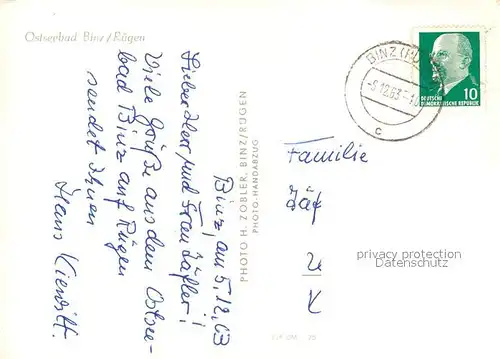 Ostseebad Binz/Rügen
Binz, am 5.12.63
Lieber Herr und Frau Läfler!
Viele Grüße aus dem Ostsee-
bad Binz auf Rügen
sendet Ihnen
Hans
PHOTO H. ZOBLER, BINZ/RÜGEN
PHOTO-HANDABZUG
BINZ
-5.12.63-
c
10
DEUTSCHE
DEMOKRATISCHE REPUBLIK
Familie
privacy protection
Datenschutz